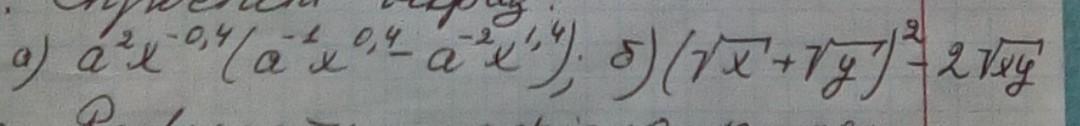 а) a²x^-0,4 (a^-1 x^0,4 - a^-2 x^1,4); б) (√x + √y)² - 2√xy